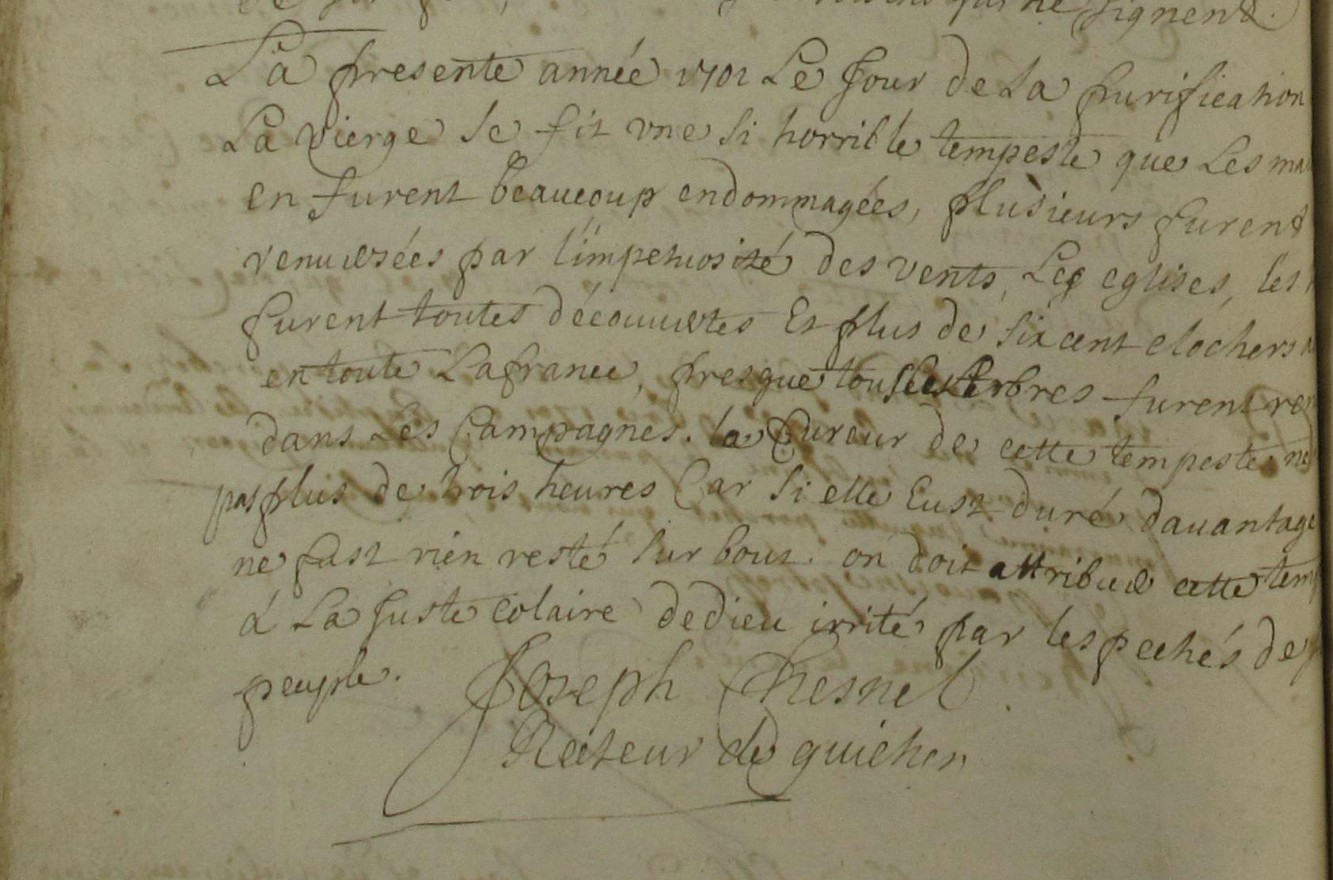 qui ne signent.
La presente année 1701 Le Jour de La purification
La vierge Se fit vne Si horrible tempeste que Les ma
en furent beaucoup endommagées, plusieurs furent
renuersées par l'impetuosité des vents, Les eglises, les
furent toutes découuertes Et plus de six cent clochers
en toute La france, presque tous Les Arbres furent ren
dans Les Campagnes. la fureur de cette tempeste ne
pas plus de trois heures Car Si elle Eust duré dauantage
ne fust rien resté Sur bout. on doit attribuer cette tem
à La Juste Colaire de dieu irrité par les pechés de
peuple.
Joseph Chesnel
Recteur de guichen